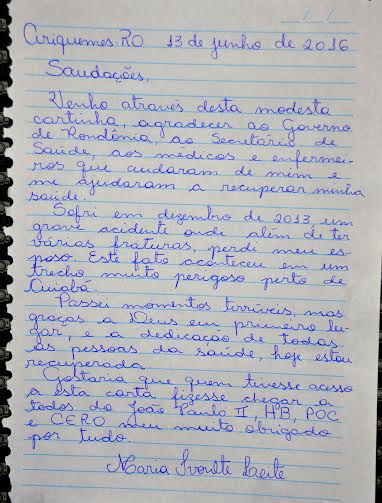 Ariquemes-RO 13 de junho de 2016
Saudações,
Venho através desta modesta
cartinha, agradecer ao Governo
de Rondônia, ao Secretário de
Saúde, aos médicos e enfermei-
ros que cuidaram de mim e
me ajudaram a recuperar minha
saúde.
Sofri em dezembro de 2013, um
grave acidente onde além de ter
várias fraturas, perdi meu es-
poso. Este fato aconteceu em um
trecho muito perigoso perto de
Cuiabá.
Passei momentos terríveis, mas
graças a Deus em primeiro lu-
gar, e a dedicação de todas
as pessoas da saúde, hoje estou
recuperada.
Gostaria que quem tivesse acesso
a esta carta fizesse chegar a
todos do João Paulo II, HB, POC
e CERO meu muito obrigado
por tudo.
Maria Leite